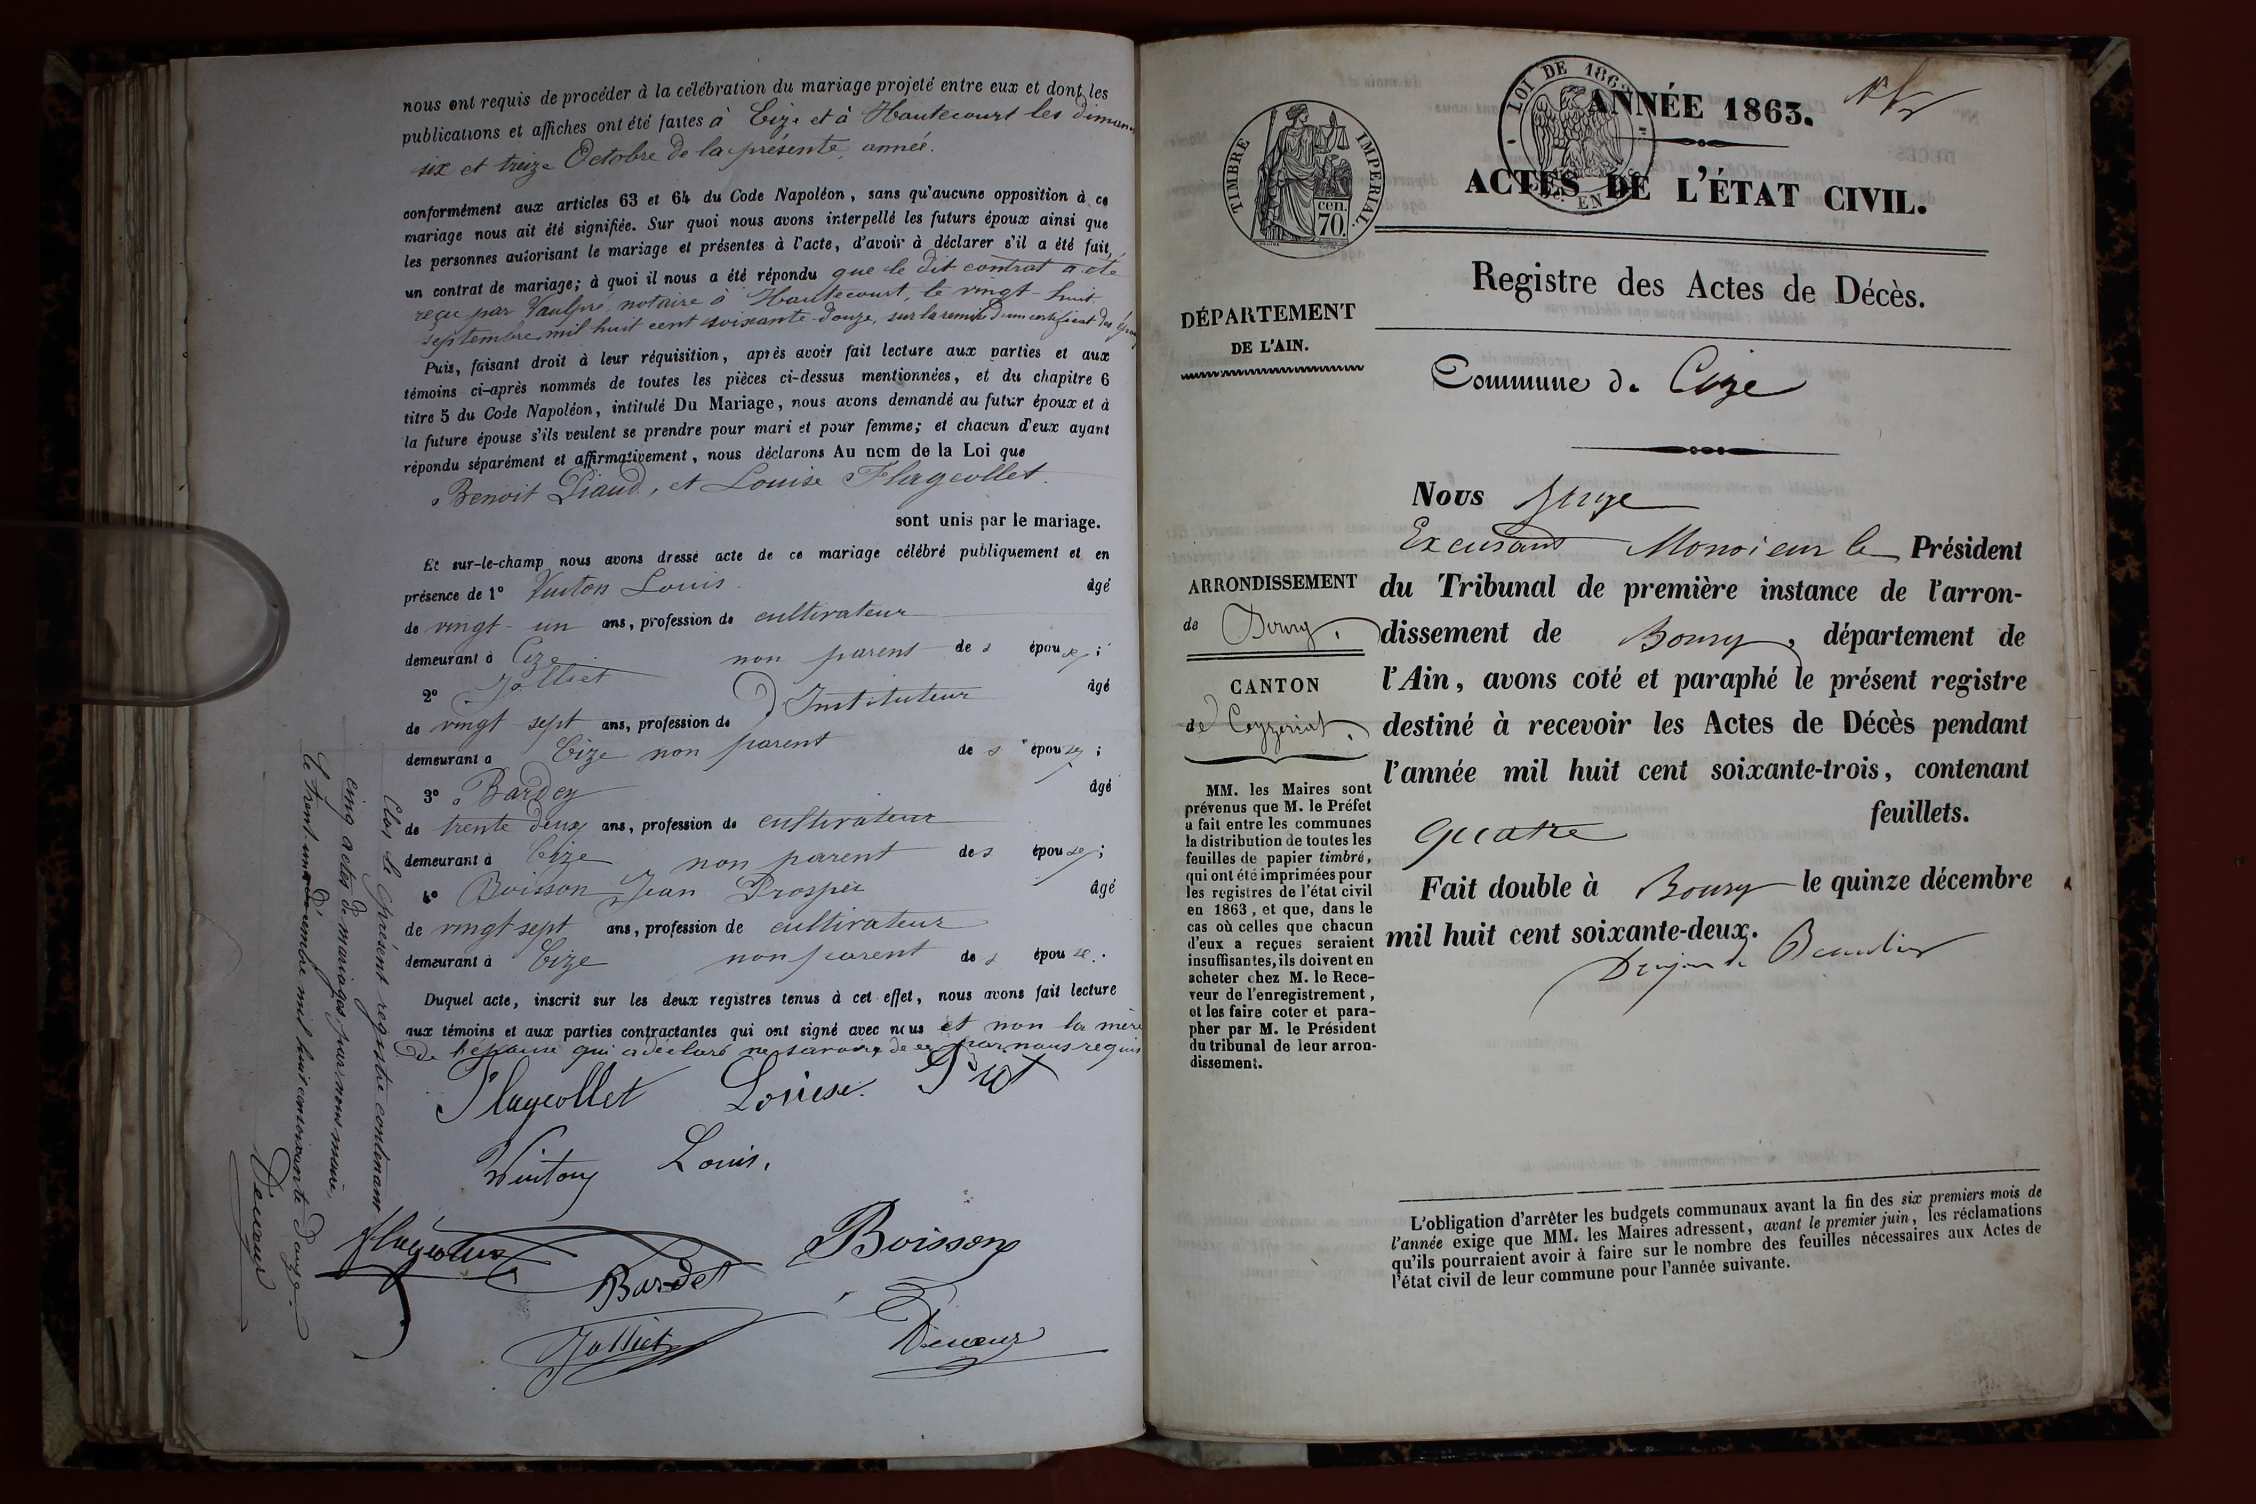 nous ont requis de procéder à la célébration du mariage projeté entre eux et dont les
publications et affiches ont été faites à Cize et à Hautecourt les
six et treize Octobre de la présente année.
conformément aux articles 63 et 64 du Code Napoléon, sans qu'aucune opposition à ce
mariage nous ait été signifiée. Sur quoi nous avons interpellé les futurs époux ainsi que
les personnes autorisant le mariage et présentes à l'acte, d'avoir à déclarer s'il a été fait
un contrat de mariage; à quoi il nous a été répondu que le dit contrat a été
reçu par notaire à Hautecourt, le vingt-huit
septembre mil huit cent soixante-douze, sur la remise d'un certificat
Puis, faisant droit à leur réquisition, après avoir fait lecture aux parties et aux
témoins ci-après nommés de toutes les pièces ci-dessus mentionnées, et du chapitre 6
titre 5 du Code Napoléon, intitulé Du Mariage, nous avons demandé au futur époux et à
la future épouse s'ils veulent se prendre pour mari et pour femme; et chacun d'eux ayant
répondu séparément et affirmativement, nous déclarons Au nom de la Loi que
Benoit Piaud, et Louise Flageollet.
sont unis par le mariage.
Et sur-le-champ nous avons dressé acte de ce mariage célébré publiquement et en
présence de 1° Louis âgé
de vingt-un ans, profession de cultivateur
demeurant à Cize non parent de s époux;
2° Jolliet âgé
de vingt sept ans, profession d'Instituteur
demeurant à Cize non parent de s époux;
3° Bardey âgé
de trente deux ans, profession de cultivateur
demeurant à Cize non parent de s époux;
4° Boisson Jean Prosper âgé
de vingt sept ans, profession de cultivateur
demeurant à Cize non parent de s époux.
Duquel acte, inscrit sur les deux registres tenus à cet effet, nous avons fait lecture
aux témoins et aux parties contractantes qui ont signé avec nous et non la mère
de l'épouse qui a déclaré ne savoir de ce par nous requis
Flageollet Louise
Louis.
Boisson
Bardet
Jolliet
Clos le présent registre contenant
cinq actes de mariages par nous maire,
le trent un décembre mil huit cent soixante douze.
TIMBRE IMPERIAL.
70 cen.
LOI DE 1862
ANNÉE 1863.
ACTES DE L'ÉTAT CIVIL.
Registre des Actes de Décès.
DÉPARTEMENT
DE L'AIN.
Commune de Cize
ARRONDISSEMENT
de Bourg.
CANTON
de Ceyzeriat.
MM. les Maires sont
prévenus que M. le Préfet
a fait entre les communes
la distribution de toutes les
feuilles de papier timbré,
qui ont été imprimées pour
les registres de l'état civil
en 1863, et que, dans le
cas où celles que chacun
d'eux a reçues seraient
insuffisantes, ils doivent en
acheter chez M. le Rece-
veur de l'enregistrement,
et les faire coter et para-
pher par M. le Président
du tribunal de leur arron-
dissement.
Nous Juge
Excusant Monsieur le Président
du Tribunal de première instance de l'arron-
dissement de Bourg, département de
l'Ain, avons coté et paraphé le présent registre
destiné à recevoir les Actes de Décès pendant
l'année mil huit cent soixante-trois, contenant
quatre feuillets.
Fait double à Bourg le quinze décembre
mil huit cent soixante-deux.
L'obligation d'arrêter les budgets communaux avant la fin des six premiers mois de
l'année exige que MM. les Maires adressent, avant le premier juin, les réclamations
qu'ils pourraient avoir à faire sur le nombre des feuilles nécessaires aux Actes de
l'état civil de leur commune pour l'année suivante.